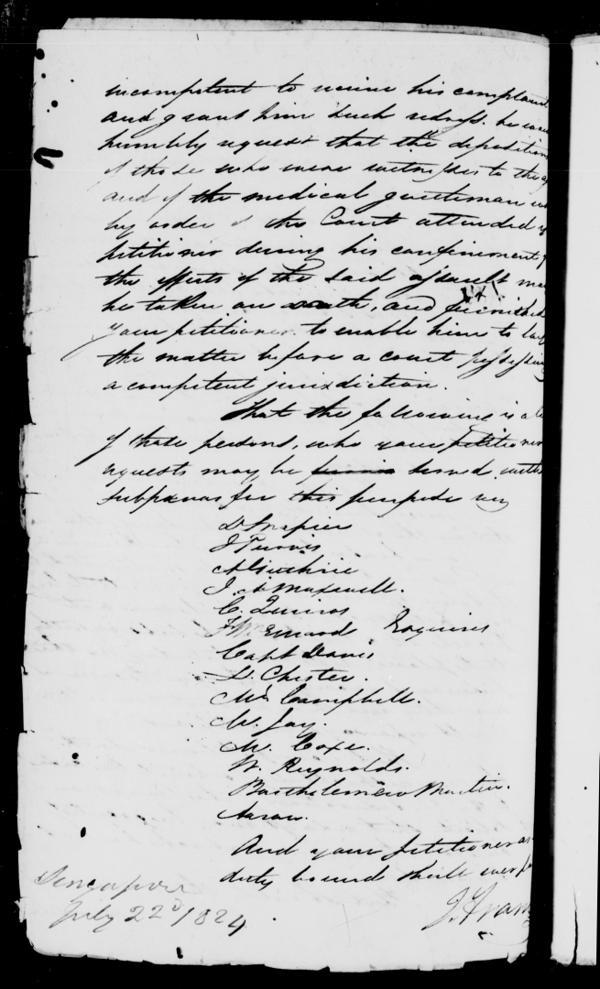 incompetent to receive his complaint
and grant him such redress. he
humbly request that the deposition
of those who were witnesses to the
and of the medical gentleman
by order of the Court attended
petitioner during his confinement
the effects of the said assault
be taken on oath, and furnished
your petitioner to enable him to lay
the matter before a court
a competent jurisdiction.
That the following is a
of those persons, who your petitioner
requests may be served with
Subpœnas for this purpose viz
D. Napier
J Purvis
A Guthrie
J. A. Maxwell.
C. Queiros
Bernard Esquires
Capt Davis
L. Chester.
Mr Campbell.
M. Jay.
M. Coxe.
W. Reynolds.
Bartholemew Martin.
Aaron.
And your petitioner as
duty bound shall ever
Singapore
July 22d 1824